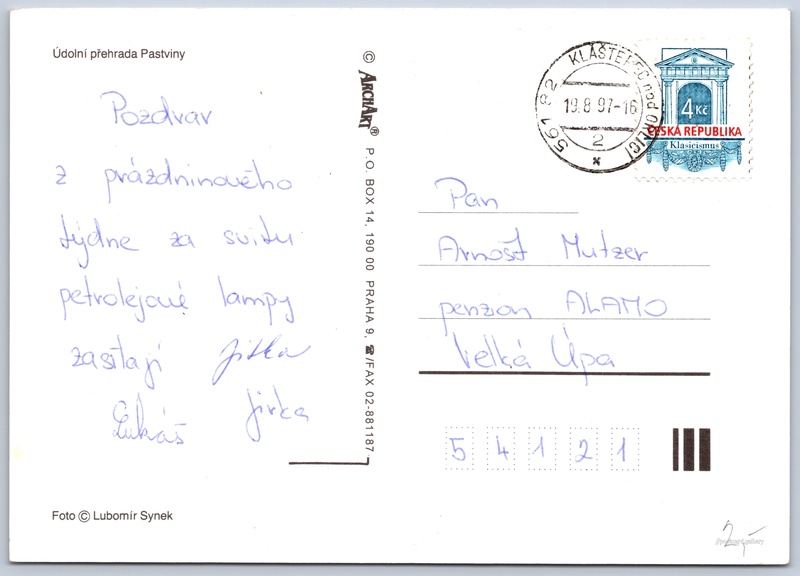 Údolní přehrada Pastviny
Pozdrav
z prázdninového
týdne za svitu
petrolejové lampy
zasílají Jitka
Jirka
Lukáš
Foto © Lubomír Synek
© ARCHART® P.O. BOX 14, 190 00 PRAHA 9, ☎/FAX 02-881187
KLÁŠTEREC nad ORLICÍ
561 82
19.8.97-16
2
*
4 Kč
ČESKÁ REPUBLIKA
Klasicismus
Pan
Arnošt Mutzer
penzion ALAMO
Velká Úpa
54121
2,-